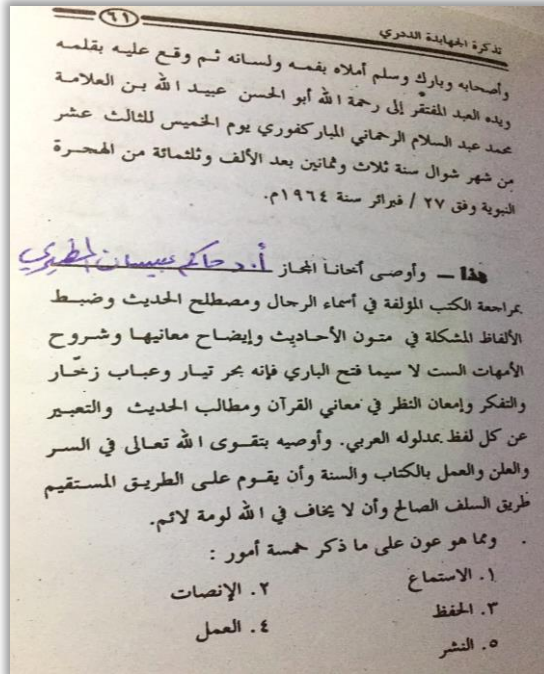 تذكرة الجهابذة الدرري
٦١
وأصحابه وبارك وسلم أملاه بفمه ولسانه ثم وقع عليه بقلمه
ويده العبد المفتقر إلى رحمة الله أبو الحسن عبيد الله بن العلامة
محمد عبد السلام الرحماني المباركفوري يوم الخميس للثالث عشر
من شهر شوال سنة ثلاث وثمانين بعد الألف وثلثمائة من الهجرة
النبوية وفق ٢٧ / فبراير سنة ١٩٦٤م.
هذا — وأوصى أخانا المجاز أ.د حاكم عبيسان المطيري
بمراجعة الكتب المؤلفة في أسماء الرجال ومصطلح الحديث وضبط
الألفاظ المشكلة في متون الأحاديث وإيضاح معانيها وشروح
الأمهات الست لا سيما فتح الباري فإنه بحر تيار وعباب زخّار
والتفكر وإمعان النظر في معاني القرآن ومطالب الحديث والتعبير
عن كل لفظ بمدلوله العربي. وأوصيه بتقوى الله تعالى في السر
والعلن والعمل بالكتاب والسنة وأن يقوم على الطريق المستقيم
طريق السلف الصالح وأن لا يخاف في الله لومة لائم.
. ومما هو عون على ما ذكر خمسة أمور :
١. الاستماع ٢. الإنصات
٣. الحفظ ٤. العمل
٥. النشر